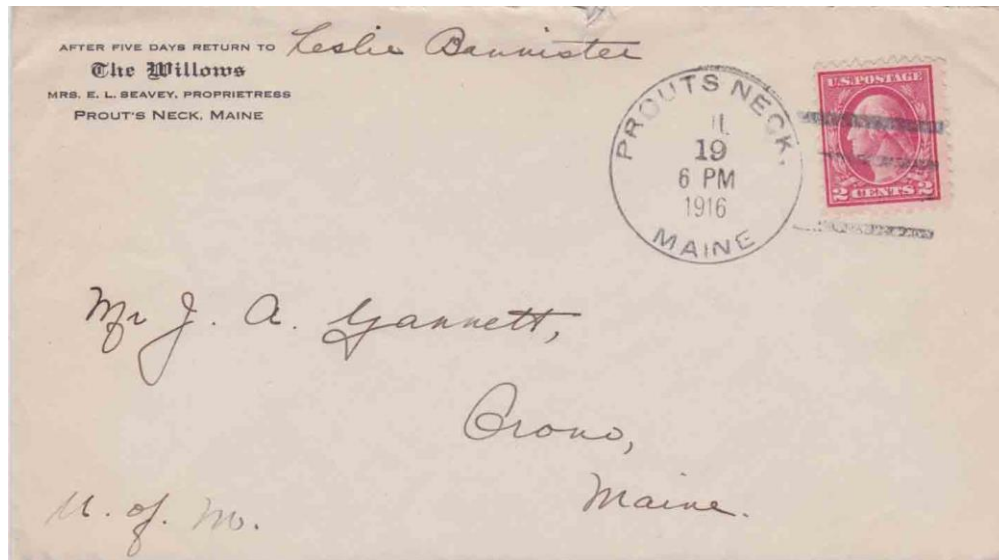 AFTER FIVE DAYS RETURN TO Leslie Bannister
The Willows
MRS. E. L. SEAVEY, PROPRIETRESS
PROUT'S NECK, MAINE
PROUTS NECK,
19
6 PM
1916
MAINE
U.S. POSTAGE
2 CENTS 2
Mr J. A. Gannett,
Orono,
Maine.
U. of M.